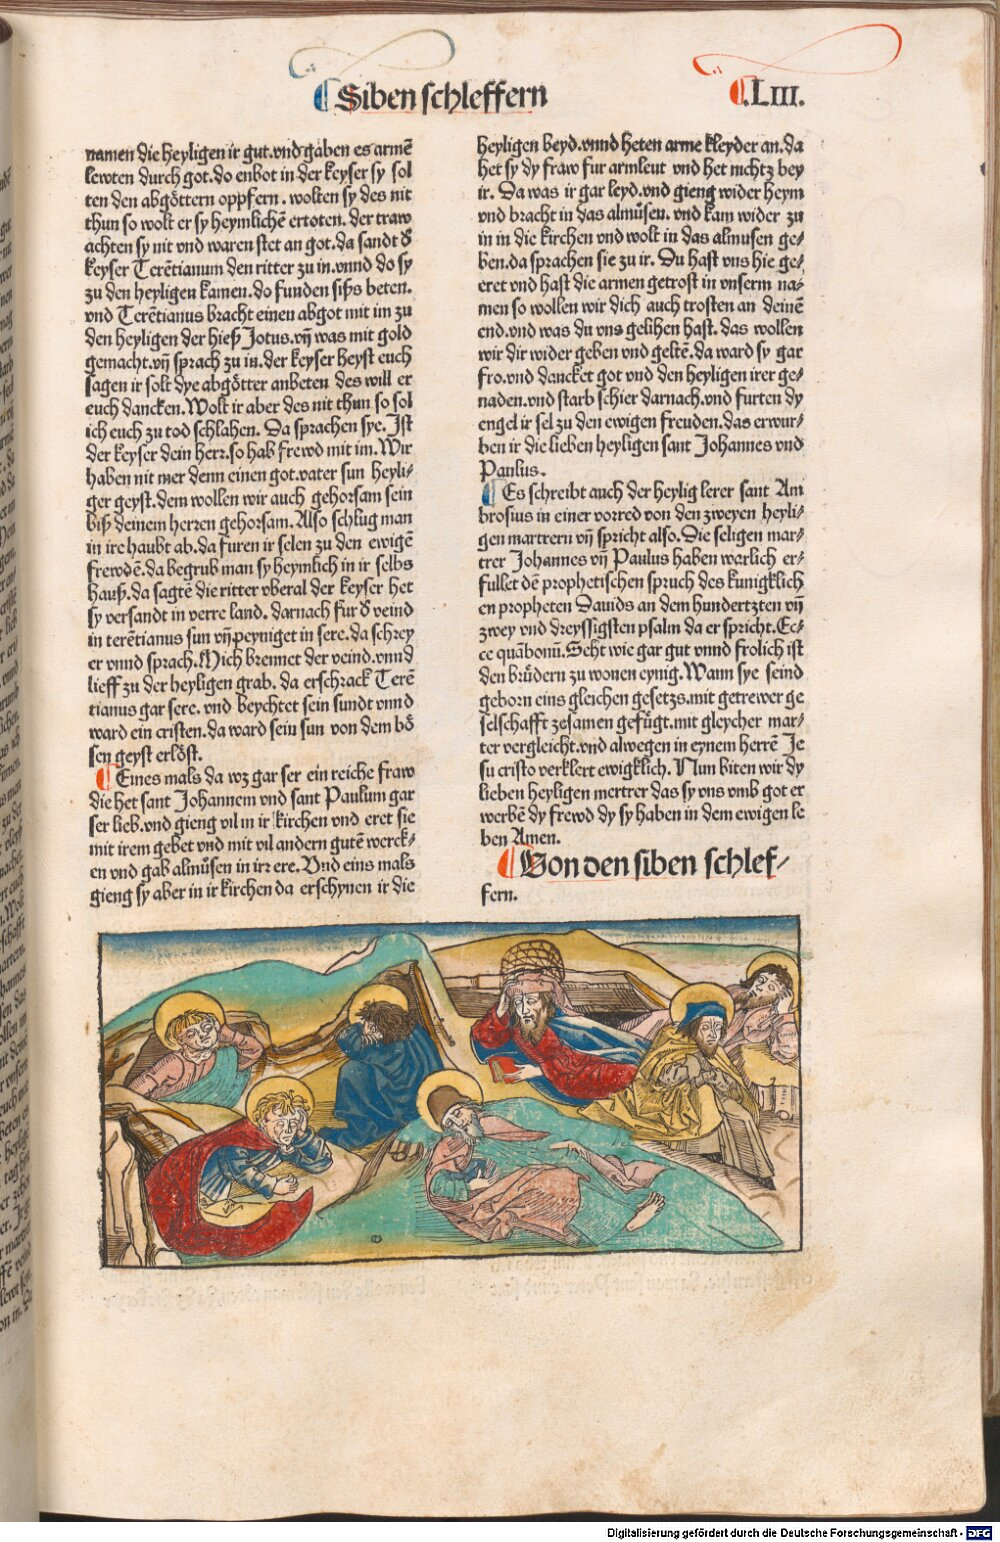 Siben schleffern
.LIII.
namen die heyligen ir gut. vnd gaben es armē
lewten durch got. do enbot in der keyser sy sol
ten den abgöttern oppfern. wolten sy des nit
thun so wolt er sy heymlichē ertoten. der traw
achten sy nit vnd waren stet an got. da sandt d̕
keyser Terētianum den ritter zu in. vnnd do sy
zu den heyligen kamen. do funden sißs beten.
vnd Terētianus bracht einen abgot mit im zu
den heyligen der hieß Jotus. vñ was mit gold
gemacht. vñ sprach zu in. der keyser heyst euch
sagen ir solt dye abgötter anbeten des will er
euch dancken. Wolt ir aber des nit thun so sol
ich euch zu tod schlahen. Da sprachen sye. Ist
der keyser dein herr. so hab frewd mit im. Wir
haben nit mer denn einen got. vater sun heyli⸗
ger geyst. dem wollen wir auch gehorsam sein
biß deinem herren gehorsam. Also schlug man
in ire haubt ab. da furen ir selen zu den ewigē
frewdē. da begrub man sy heymlich in ir selbs
hauß. da sagtē die ritter vberal der keyser het
sy versandt in verre land. darnach fur d̕ veind
in terētianus sun vñ peyniget in sere. da schrey
er vnnd sprach. Mich brennet der veind. vnnd
lieff zu der heyligen grab. da erschrack Terē
tianus gar sere. vnd beychtet sein sundt vnnd
ward ein cristen. da ward sein sun von dem bö
sen geyst erlöst.
Eines mals da wz gar ser ein reiche fraw
die het sant Johannem vnd sant Paulum gar
ser lieb. vnd gieng vil in ir kirchen vnd eret sie
mit irem gebet vnd mit vil andern gutē werck⸗
en vnd gab almůsen in irr ere. Vnd eins mals
gieng sy aber in ir kirchen da erschynen ir die
heyligen beyd. vnnd heten arme kleyder an. da
het sy dy fraw fur armleut vnd het nichtz bey
ir. Da was ir gar leyd. vnd gieng wider heym
vnd bracht in das almůsen. vnd kam wider zu
in in die kirchen vnd wolt in das almusen ge⸗
ben. da sprachen sie zu ir. Du hast vns hie ge⸗
eret vnd hast die armen getrost in vnserm na⸗
men so wollen wir dich auch trosten an deinē
end. vnd was du vns gelihen hast. das wollen
wir dir wider geben vnd geltē. da ward sy gar
fro. vnd dancket got vnd den heyligen irer ge⸗
naden. vnd starb schier darnach. vnd furten dy
engel ir sel zu den ewigen freuden. das erwur⸗
ben ir die lieben heyligen sant Johannes vnd
Paulus.
Es schreibt auch der heylig lerer sant Am
brosius in einer vorred von den zweyen heyli⸗
gen martrern vñ spricht also. Die seligen mar⸗
trer Johannes vñ Paulus haben warlich er⸗
fullet dē prophetischen spruch des kunigklich
en propheten Dauids an dem hundertzten vñ
zwey vnd dreyssigsten psalm da er spricht. Ec⸗
ce quābonū. Seht wie gar gut vnnd frolich ist
den brüdern zu wonen eynig. Wann sye seind
geborn eins gleichen gesetzs. mit getrewer ge
selschafft zesamen gefügt. mit gleycher mar⸗
ter vergleicht. vnd alwegen in eynem herrē Je
su cristo verklert ewigklich. Nun biten wir dy
lieben heyligen mertrer das sy vns vmb got er
werbē dy frewd dy sy haben in dem ewigen le
ben Amen.
Von den siben schlef⸗
fern.
Digitalisierung gefördert durch die Deutsche Forschungsgemeinschaft - DFG